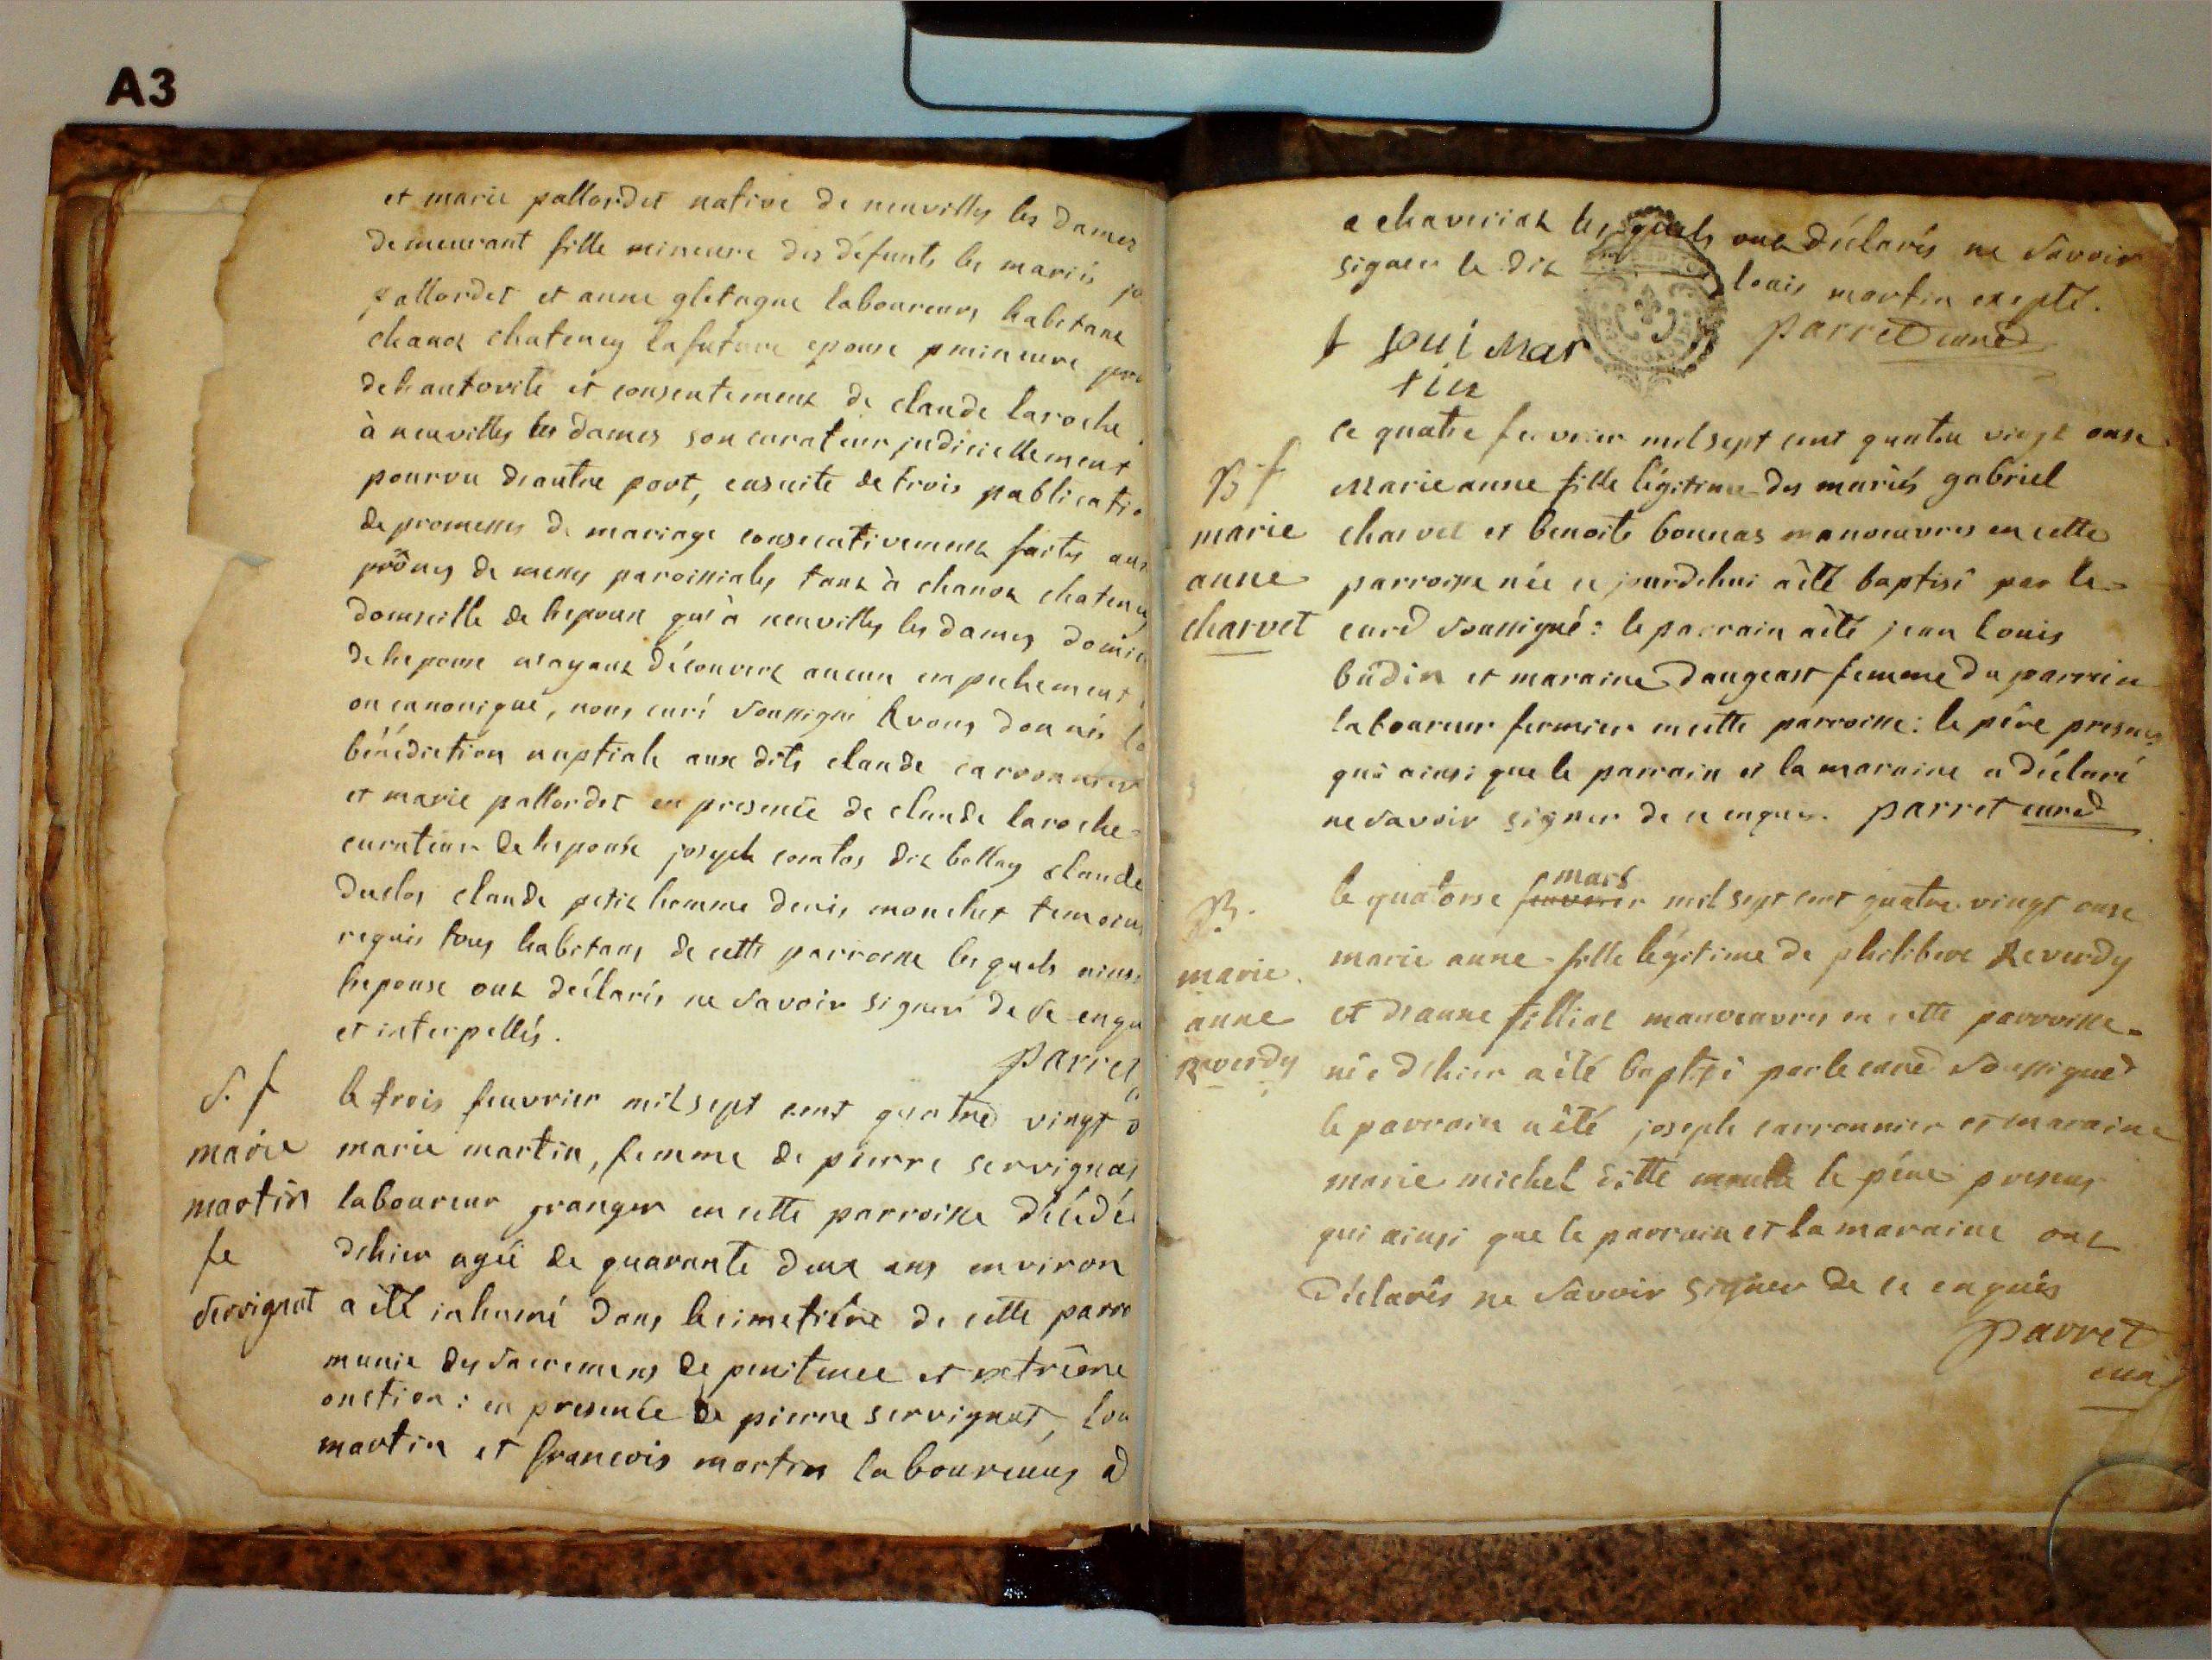 A3
et marie pallordet native de neuvilles les dames
demeurant fille mineure des défunts les mariés
pallordet et anne gletagne laboureurs habitans
chanoz chatenay la future epouse mineure
de l'hautorité et consentement de claude laroche
à neuvilles les dames son curateur judiciellement
pourvu d'autre part, ensuite de trois publicatio
de promesses de mariage consecutivement faites aux
prônes de messes paroissiales tant à chanoz chatenay
domicille de l'epoux qu'à neuvilles les dames domic
de l'epouse n'ayant découvert aucun empechement
ou canonique, nous curé soussigné avons donnés la
bénédiction nuptiale aux dits claude carronnier
et marie pallordet en presence de claude laroche
curateur de l'epouse joseph comtos dit bellay claude
duclos claude petit homme denis monchet temoins
requis tous habitans de cette parroisse lesquels ainsi
l'epouse ont déclarés ne savoir signer de ce enqu
et interpellés.
parret
S. f
marie
martin
fe
servignat
le trois feuvrier mil sept cent quatre vingt
marie martin, femme de pierre servignat
laboureur granger en cette parroisse décédée
d'hier agée de quarante deux ans environ
a été inhumé dans le cimetière de cette parro
munie des sacremens de penitence et extrême
onction: en presence de pierre servignat, lou
martin et francois martin laboureurs à
a chaveriat lesquels ont déclarés ne savoir
signer le dit louis martin exepté.
parret curé
loui mar
tin
B f
marie
anne
charvet
ce quatre feuvrier mil sept cent quatre vingt onse
Marie anne fille légitime des mariés gabriel
charvet et benoite bonnas manoeuvres en cette
parroisse née ce jourdehui a été baptisé par le
curé soussigné: le parrain a été jean louis
budin et maraine dangeast femme du parrain
laboureur fermier en cette parroisse: le père present
qui ainsi que le parrain et la maraine a déclaré
ne savoir signer de ce enquis. parret curé
B.
marie
anne
reverdy
mars
le quatorse feuvrier mil sept cent quatre vingt onse
marie anne fille légitime de philibert Reverdy
et d'anne filliat manoeuvres en cette parroisse
née d'hier a été baptisé par le curé soussigné
le parrain a été joseph carronnier et maraine
marie michel ditte le père present
qui ainsi que le parrain et la maraine ont
déclarés ne savoir signer de ce enquis
parret
curé